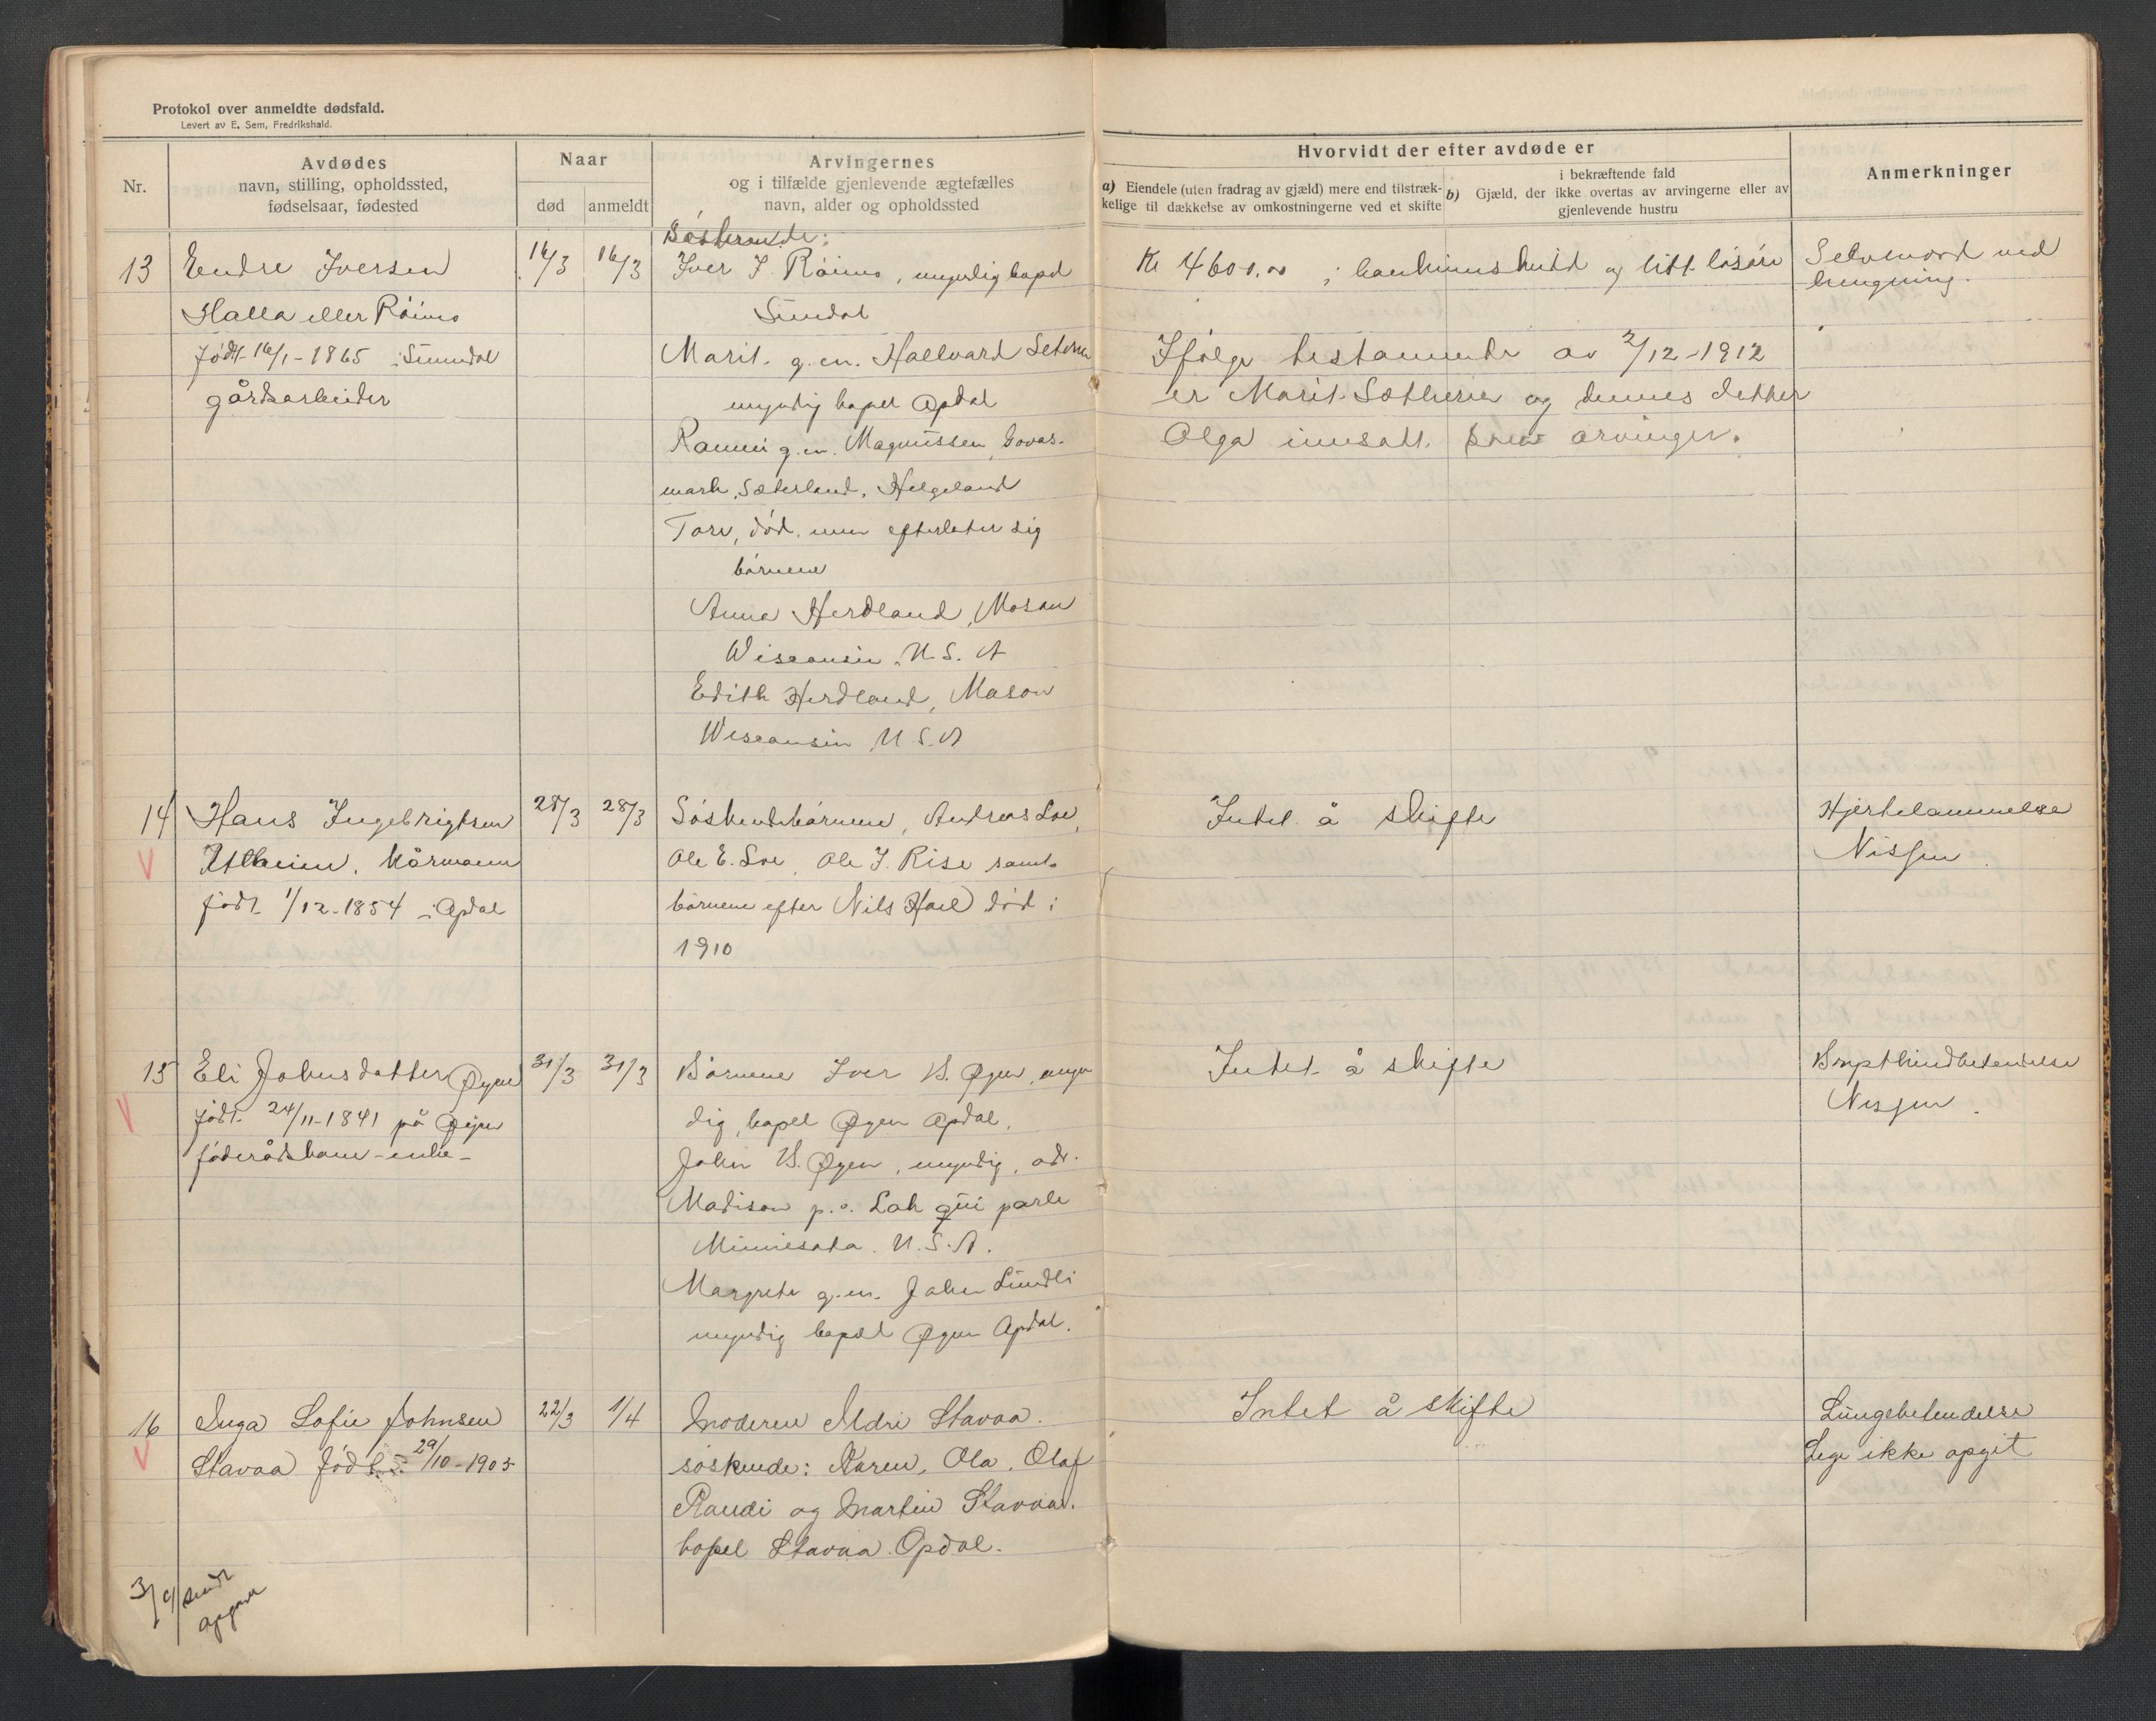 Protokol over anmeldte dødsfald.
Levert av E. Sem, Fredrikshald.
Nr.
Avdødes
navn, stilling, opholdssted,
fødselsaar, fødested
Naar
død
anmeldt
Arvingernes
og i tilfælde gjenlevende ægtefælles
navn, alder og opholdssted
Hvorvidt der efter avdøde er
a) Eiendele (uten fradrag av gjæld) mere end tilstræk-
kelige til dækkelse av omkostningerne ved et skifte
i bekræftende fald
b) Gjæld, der ikke overtas av arvingerne eller av
gjenlevende hustru
Anmerkninger
13
Endre Iversen
Halla eller Röimo
født 16/1-1865 i Sunndal
gårdsarbeider
16/3
16/3
Söskende:
Iver I. Röimo, myndig bopel
Sundal
Marit g.m. Hallvard
myndig bopel Opdal
Ranni g.m. Magnussen,
mark, Sæterland, Helgeland
Tore, död, men efterlater sig
börnene
Anne Herdland, Mason
Wisconsin, U.S.A
Edith Herdland, Mason
Wisconsin, U.S.A
Kr 4600,00 i bankinnskudd og litt lösöre
Ifölge testamente av 2/12-1912
er Marit Sætheren og dennes datter
Olga innsatt som arvinger.
Selvmord ved
hengning.
14
Hans Ingebrigtsen
kårmann
födt 1/12-1854 i Opdal
28/3
28/3
Söskendebörnene, Andreas Loe,
Ole E. Loe, Ole J. Rise samt
börnene efter Nils Hael död i
1910
Intet å skifte
Hjertelammelse
Nissen
15
Eli Johnsdatter Øyen
födt 24/11-1841 på Øyen
föderådskone - enke -
31/3
31/3
Börnene Iver B. Øyen, myn
dig, bopel Øyen Opdal,
John B. Øyen, myndig, adr.
Madison p.o. Lak qui parle
Minnesota. U.S.A.
Margrete g.m. John Lundli
myndig bopel Øyen Opdal.
Intet å skifte
Nissen
16
Inga Sofie Johnsen
Stavaa född 29/10-1905
22/3
1/4
Moderen Aldri Stavaa.
söskende: Karen, Ola, Olaf
Randi og Martin Stavaa.
bopel Stavaa Opdal.
Intet å skifte
Lungebetendelse
Lege ikke opgit
3/4 sendt
opgave